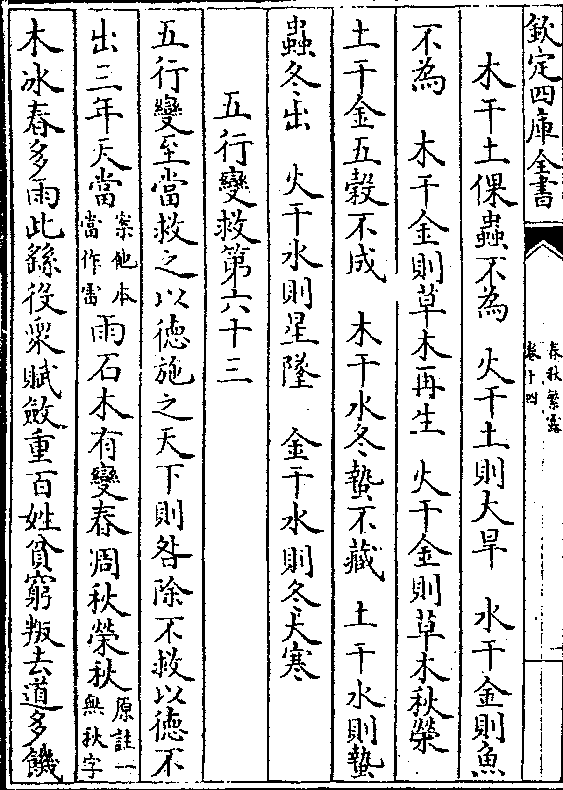 欽定四庫全書
春秋繁露
卷十四
木干土倮蟲不為　火干土則大旱　水干金則魚
不為　木干金則草木再生　火干金則草木秋榮
土干金五穀不成　木干水冬蟄不藏　土干水則蟄
蟲冬出　火干水則星墜　金干水則冬大寒
五行變救第六十三
五行變至當救之以德施之天下則咎除不救以德不
出三年天當案他本當作雷雨石木有變春凋秋榮秋原註一無秋字
木冰春多雨此繇役衆賦斂重百姓貧窮叛去道多饑